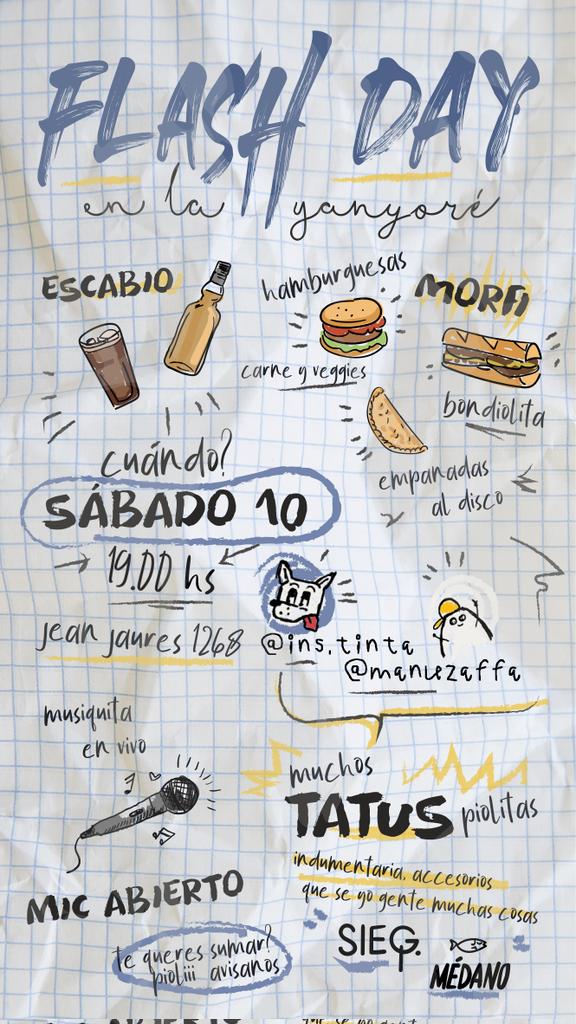 FLASH DAY
en la yanyoré
ESCABIO
hamburguesas
MORFI
carne y veggies
bondiolita
empanadas
al disco
cuándo?
SÁBADO 10
19.00 hs
jean jaures 1268
@ins.tinta
@manuezaffa
musiquita
en vivo
MIC ABIERTO
te queres sumar?
pioliii avisanos
muchos
TATUS piolitas
indumentaria, accesorios
que se yo gente muchas cosas
SIEG.
MÉDANO